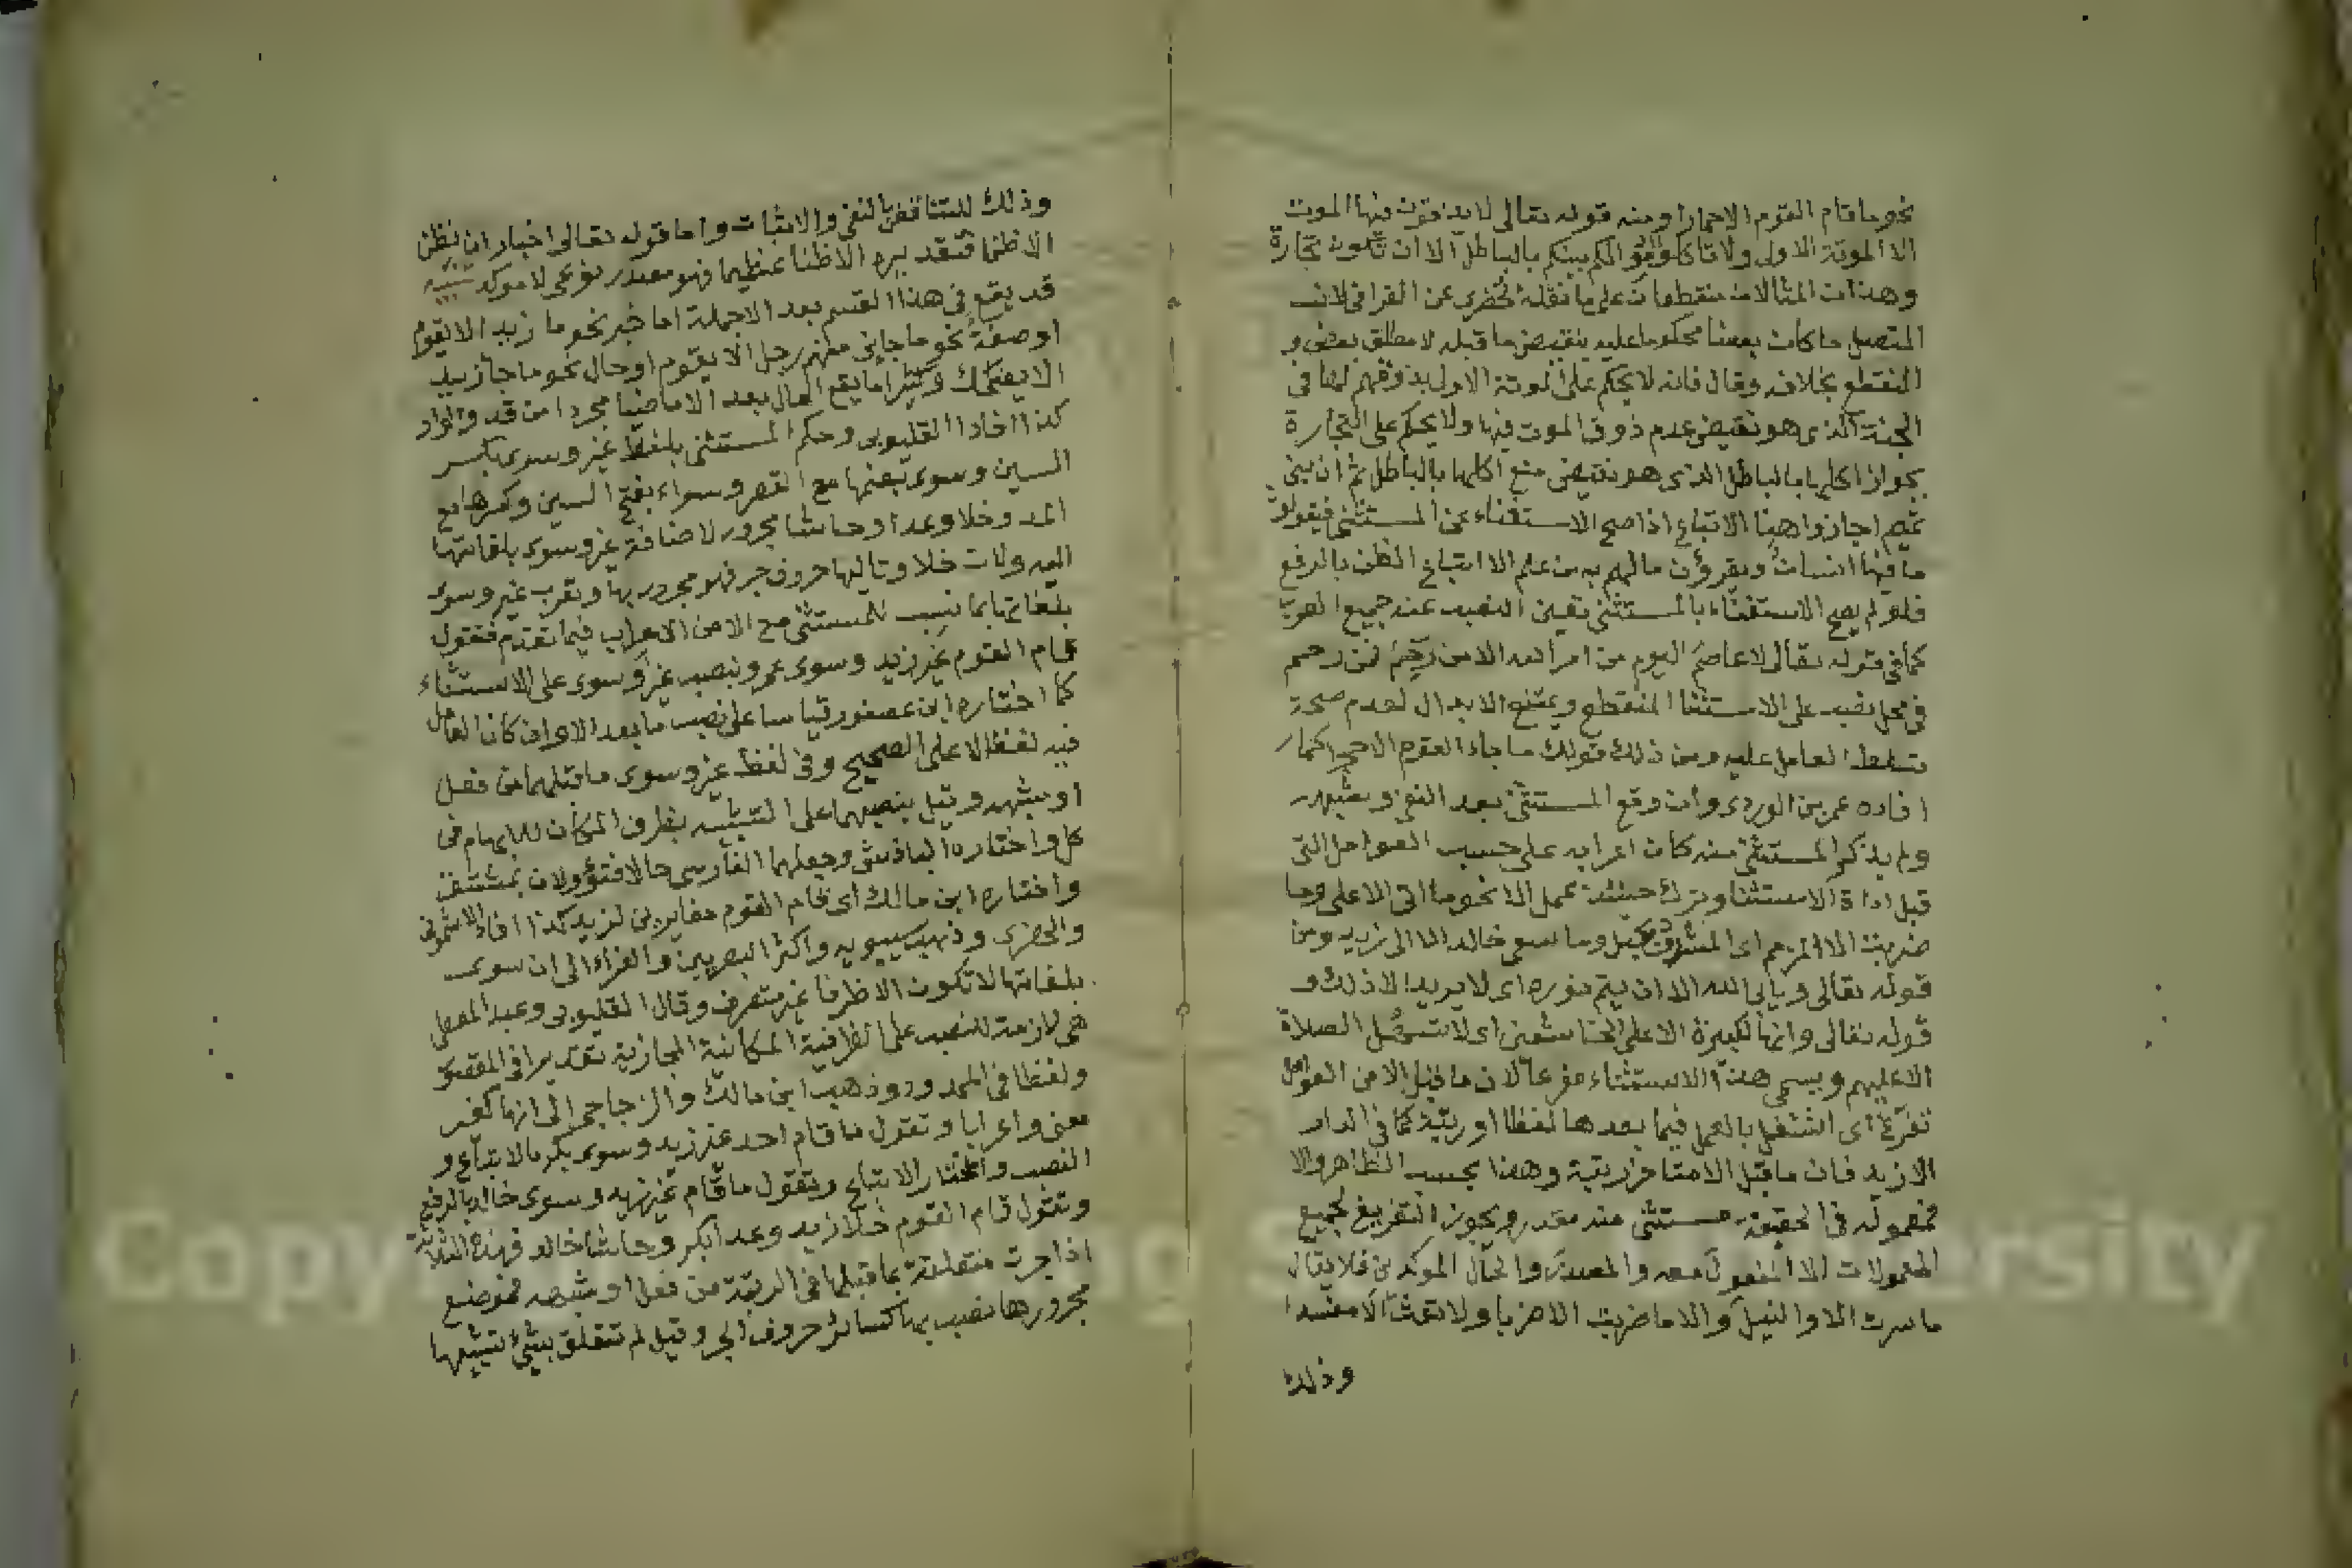 نحو ما قام القوم الا حمارا ومنه قوله تعالى لا يذوقون فيها الموت
الا الموتة الاولى ولا تاكلوا اموالكم بينكم بالباطل الا ان تكون تجارة
وهذان المثالان منقطعان على ما نقله الخضري عن القرافي لان
المتصل ما كان بعضا محكوما عليه بنقيض ما قبله لا مطلق بعض و
المنقطع بخلافه وقال فانه لا يحكم على الموتة الاولى بذوقهم لها في
الجنة الذي هو نقيض عدم ذوق الموت فيها ولا يحكم على التجارة
بجواز اكلها بالباطل الذي هو نقيض منع اكلها بالباطل ثم ان بني
تميم اجازوا هنا الاتباع اذا صح الاستغناء عن المستثنى فيقولون
ما فيها انسان ويقرؤن ما لهم به من علم الا اتباع الظن بالرفع
فلو لم يصح الاستغناء بالمستثنى تعين النصب عند جميع العرب
كما في قوله تعالى لا عاصم اليوم من امر الله الا من رحم فمن رحم
في محل نصب على الاستثنا المنقطع ويمتنع الابدال لعدم صحة
تسلط العامل عليه ومن ذلك قولك ما جاء القوم الا حمارا كما
افاده عمر بن الوردي وان وقع المستثنى بعد النفي وشبهه
ولم يذكر المستثنى منه كان اعرابه على حسب العوامل التي
قبل اداة الاستثنا وترك حينئذ عمل الا نحو ما اتى الا علي وما
ضربت الا المزمم اى وما سعى خالد الا الى زيد ومن
قوله تعالى ويابى الله الا ان يتم نوره اى لا يريد الا ذلك و
قوله تعالى وانها لكبيرة الا على الخاشعين اى لا تسهل الصلاة
الا عليهم ويسمى هذا الاستثناء مفرغا لان ما قبل الا من العوامل
تفرغ اى اشتغل بالعمل فيما بعدها لفظا او رتبة كما في الدار
الا زيد فان ما قبل الا متاخر رتبة وهذا بحسب الظاهر والا
فمعموله في الحقيقة مستثنى منه مقدر ويجوز التفريغ لجميع
المعمولات الا المفعول معه والمصدر والحال الموكدين فلا يقال
ما سرت الا والنيل والا ما ضربت الا ضربا ولا تعث الا مفسدا
وذلك
وذلك للتناقض بالنفي والاثبات واما قوله تعالى اخبارا ان نظن
الا ظنا فتقديره الا ظنا عظيما فهو مصدر نوعي لا موكد تنبيه
قد يقع في هذا القسم بعد الا جملة اما خبر نحو ما زيد الا يقوم
او صفة نحو ما جاني منهم رجل الا يقوم او حال نحو ما جا زيد
الا يضحك وكثيرا ما يقع الحال بعد الا ماضيا مجردا من قد والواو
كذا افاد القليوبي وحكم المستثنى بلفظ غير وسوى بكسر
السين وسوى بضمها مع القصر وسواء بفتح السين وكسرها مع
المد وخلا وعدا وحاشا مجرور لاضافة غير وسوى بلغاتها
اليه ولان خلا وتاليها حروف جر فهو مجرور بها وتعرب غير وسوى
بلغاتها بما نسب للمستثنى مع الا من الاعراب فيما تقدم فتقول
قام القوم غير زيد وسوى عمرو بنصب غير وسوى على الاستثناء
كما اختاره ابن عصفور قياسا على نصب ما بعد الا وان كان العامل
فيه لفظ الا على الصحيح وفي لفظ غير وسوى ما قبلهما من فعل
او شبهه وقيل بنصبهما على التشبيه بظرف المكان للابهام في
كل واختاره الباذش وجعلهما الفارسي حالا فتؤولان بمشتق
واختاره ابن مالك اى قام القوم مغايرين لزيد كذا افاد الاشموني
والخضري وذهب سيبويه واكثر البصريين والفراء الى ان سوى
بلغاتها لا تكون الا ظرفا غير متصرف وقال القليوبي وعبد المعطي
هي لازمة للنصب على الظرفية المكانية المجازية تقديرا في المقصور
ولفظا في الممدود وذهب ابن مالك والزجاجي الى انها كغير
معنى واعرابا وتقول ما قام احد غير زيد وسوى بكر بالاتباع و
النصب والمختار الاتباع وتقول ما قام غير زيد وسوى خالد بالرفع
وتقول قام القوم خلا زيد وعدا بكر وحاشا خالد فهذه الثلاثة
اذا جرت متعلقة بما قبلها في الرتبة من فعل او شبهه فموضع
مجرورها نصب بها كسائر حروف الجر وقيل لم تتعلق بشئ تشبيها